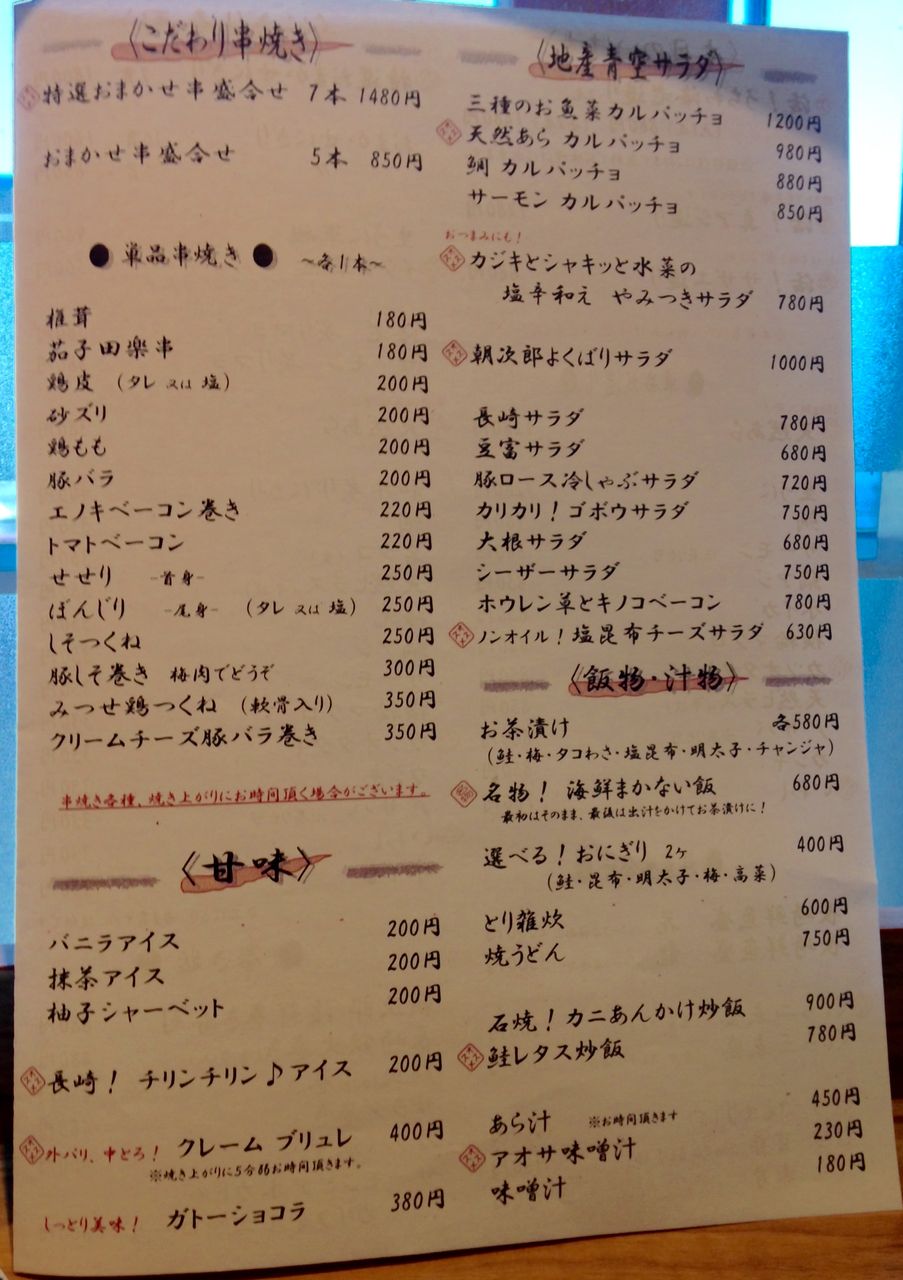 〈こだわり串焼き〉
特選おまかせ串盛合せ 7本 1480円
おまかせ串盛合せ 5本 850円
● 単品串焼き ● ～各1本～
椎茸 180円
茄子田楽串 180円
鶏皮 (タレ 又は 塩) 200円
砂ズリ 200円
鶏もも 200円
豚バラ 200円
エノキベーコン巻き 220円
トマトベーコン 220円
せせり -首身- 250円
ぼんじり -尾身- (タレ 又は 塩) 250円
しそつくね 250円
豚しそ巻き 梅肉でどうぞ 300円
みつせ鶏つくね (軟骨入り) 350円
クリームチーズ豚バラ巻き 350円
串焼き各種、焼き上がりにお時間頂く場合がございます。
〈甘味〉
バニラアイス 200円
抹茶アイス 200円
柚子シャーベット 200円
長崎! チリンチリン♪アイス 200円
外パリ、中とろ! クレーム ブリュレ 400円
※焼き上がりに5分弱お時間頂きます。
しっとり美味! ガトーショコラ 380円
〈地産青空サラダ〉
三種のお魚菜カルパッチョ 1200円
天然あら カルパッチョ 980円
鯛 カルパッチョ 880円
サーモン カルパッチョ 850円
おつまみにも!
カジキとシャキッと水菜の
塩辛和え やみつきサラダ 780円
朝次郎よくばりサラダ 1000円
長崎サラダ 780円
豆富サラダ 680円
豚ロース冷しゃぶサラダ 720円
カリカリ!ゴボウサラダ 750円
大根サラダ 680円
シーザーサラダ 750円
ホウレン草とキノコベーコン 780円
ノンオイル!塩昆布チーズサラダ 630円
〈飯物・汁物〉
お茶漬け 各580円
(鮭・梅・タコわさ・塩昆布・明太子・チャンジャ)
名物! 海鮮まかない飯 680円
最初はそのまま、最後は出汁をかけてお茶漬けに!
選べる!おにぎり 2ケ 400円
(鮭・昆布・明太子・梅・高菜)
とり雑炊 600円
焼うどん 750円
石焼!カニあんかけ炒飯 900円
鮭レタス炒飯 780円
あら汁 ※お時間頂きます 450円
アオサ味噌汁 230円
味噌汁 180円